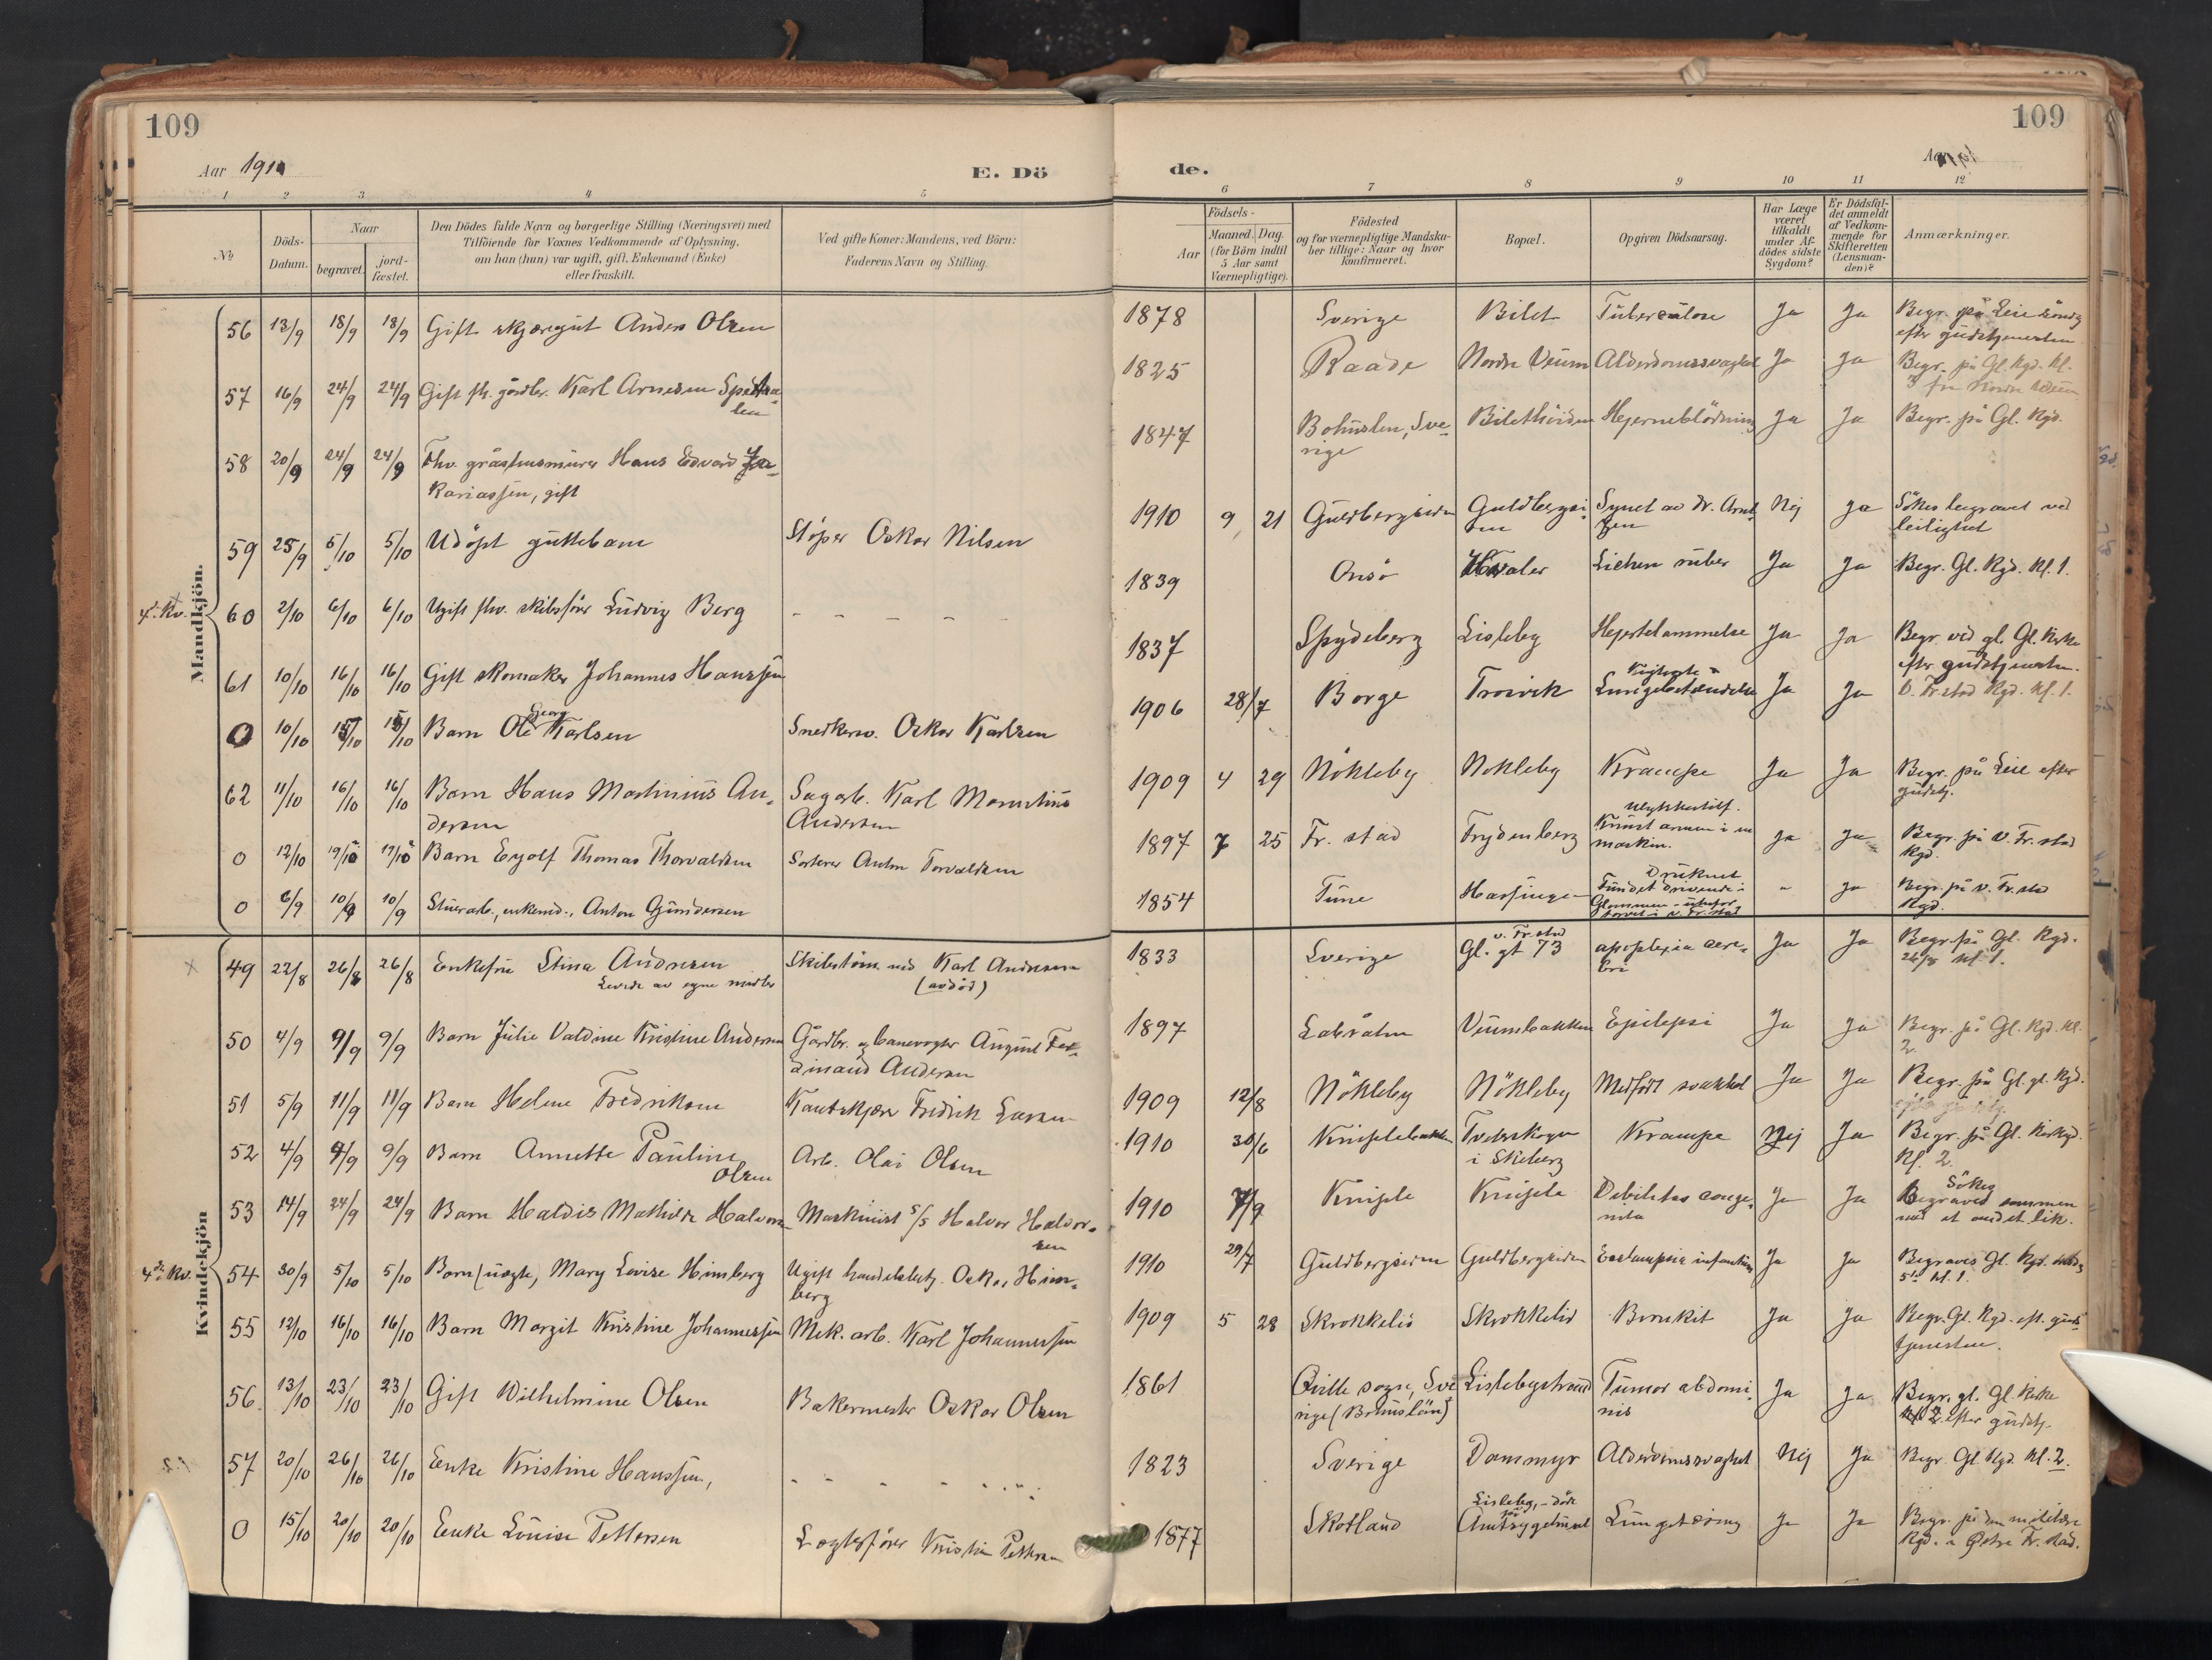 109
109
Aar 1910
E. Dö
de.
1 2 3 4 5
6 7 8 9 10 11 12
No
Döds-
Datum.
Naar
begravet.
jord-
fæstet.
Den Dödes fulde Navn og borgerlige Stilling (Næringsvei) med
Tilföiende for Voxnes Vedkommende af Oplysning,
om han (hun) var ugift, gift, Enkemand (Enke)
eller fraskilt.
Ved gifte Koner: Mandens, ved Börn:
Faderens Navn og Stilling.
Födsels-
Aar
Maaned. Dag.
(for Börn indtil
5 Aar samt
Værnepligtige).
Födested
og for værnepligtige Mandska-
ber tillige: Naar og hvor
konfirmeret.
Bopæl.
Opgiven Dödsaarsag.
Har Læge
været
tilkaldt
under Af-
dödes sidste
Sygdom?
Er Dödsfal-
det anmeldt
af Vedkom-
mende for
Skifteretten
(Lensman-
den)?
Anmærkninger.
Mandkjön.
56 13/9 18/9 18/9 Gift skjæregut Anders Olsen 1878 Sverige Bilet Tuberculose Ja Ja Begr. på Leie
efter gudstjenesten
57 16/9 24/9 24/9 Gift fh. gårdbr. Karl Arnesen 1825 Raade Nordre Veum Alderdomssvaghet Ja Ja Begr. på Gl. Kgd. Kl.
3 fra Nordre Veum
58 20/9 24/9 24/9 Fhv. Hans Edvard
kariassen, gift 1847 Bohuslen, Sve-
rige Hjerneblödning Ja Ja Begr. på Gl. Kgd.
59 25/9 5/10 5/10 Udöpt guttebarn Stöper Oskar Nilsen 1910 9 21 Guldbergsiden Guldbergsi-
den Synet av Dr. Arnt-
zen Nej Ja Sökes begravet ved
leilighet
4. Kv. 60 2/10 6/10 6/10 Ugift fhv. skibsförer Ludvig Berg - - - - - 1839 Onsö Hvaler Lichen ruber Ja Ja Begr. Gl. Kgd. Kl. 1.
61 10/10 16/10 16/10 Gift skomaker Johannes Hanssen 1837 Spydeberg Lisleby Hjertelammelse Ja Ja Begr. ved gl. Gl. Kirke
efter gudstjenesten.
0 10/10 15/10 15/10 Barn Ole Georg Karlsen Snedkersv. Oskar Karlsen 1906 28/7 Borge Trosvik Kighoste &
Lungebetændelse Ja Ja V. Fr.stad Kgd. Kl. 1.
62 11/10 16/10 16/10 Barn Hans Martinius An-
dersen Sagarb. Karl
Andersen 1909 4 29 Nökleby Nökleby Krampe Ja Ja Begr. på Leie efter
gudstj.
0 12/10 19/10 19/10 Barn Eyolf Thomas Thorvaldsen Sorterer Anton Torvaldsen 1897 7 25 Fr. stad Frydenberg Ulykkestilf.
Knust armen i en
maskin. Ja Ja Begr. på V. Fr. stad
Kgd.
0 6/9 10/9 10/9 Stuerarb., enkemd., Anton Gundersen 1854 Tune Druknet
Fundet drivende i
Glommen - utenfor
torvet i V. Fr. stad - Ja Begr. på V. Fr. stad
Kgd.
Kvindekjön
49 22/8 26/8 26/8 Enkefru Stina Andresen
Levede av egne midler Skibstöm.md Karl Andresen
(avdöd) 1833 Sverige V. Fr.stad
Gl. gt 73 apoplexia cere-
bri Ja Ja Begr. på Gl. Kgd.
26/8 kl. 1.
50 4/9 9/9 9/9 Barn Julie Valdine Kristine Andersen Gårdbr. og banevogter August Fer-
dinand Andersen 1897 Veumbakken Epilepsi Ja Ja Begr. på Gl. Kgd. Kl.
2.
51 5/9 11/9 11/9 Barn Helene Fredriksen Kantskjærer Fredrik Larsen 1909 12/8 Nökleby Nökleby Medfödt svakhet Ja Ja Begr. på Gl. gl. Kgd.
52 4/9 9/9 9/9 Barn Annette Pauline
Olsen Arb. Olai Olsen 1910 30/6 Kniplebakken
i Skeberg Krampe Nej Ja Begr. på Gl. Kirkegd.
Kl. 2.
53 14/9 24/9 24/9 Barn Haldis Mathilde Halvorsen Maskinist s/s Halvor Halvor-
sen 1910 7/9 Kniple Kniple Debilitas conge-
nita Ja Ja Sökes
Begraved sammen
med et andet lik.
4de Kv. 54 30/9 5/10 5/10 Barn (uegte), Mary Lovise Himberg Ugift handelsbetj. Oskar Him-
berg 1910 29/7 Guldbergsiden Guldbergsiden Eeclampsia infantium Ja Ja Begraves Gl. Kgd. onsdag
5te kl. 1.
55 12/10 16/10 16/10 Barn Margit Kristine Johannessen Mek. arb. Karl Johannessen 1909 5 28 Skrokkelid Skrokkelid Bronkit Ja Ja Begr. Gl. Kgd. eft. guds-
tjenesten.
56. 13/10 23/10 23/10 Gift Wilhelmine Olsen Bakermester Oskar Olsen 1861 Qville sogn, Sve-
rige (Bohuslän) Lislebystrand Tumor abdomi-
nis Ja Ja Begr. gl. Gl. Kirke
efter gudstj.
57 20/10 26/10 26/10 Enke Kristine Hanssen, - - - - 1823 Sverige Dammyr Alderdomssvaghet Nej Ja Begr. Gl. Kgd. Kl. 2.
0 15/10 20/10 20/10 Enke Louise Pettersen Lægtsförer Kristian Pettersen 1877 Skotland Lisleby, - döde
på
Amtssygehuset Lungetæring Ja Ja Begr. på den militære
Kgd. i Østre Fr. stad.